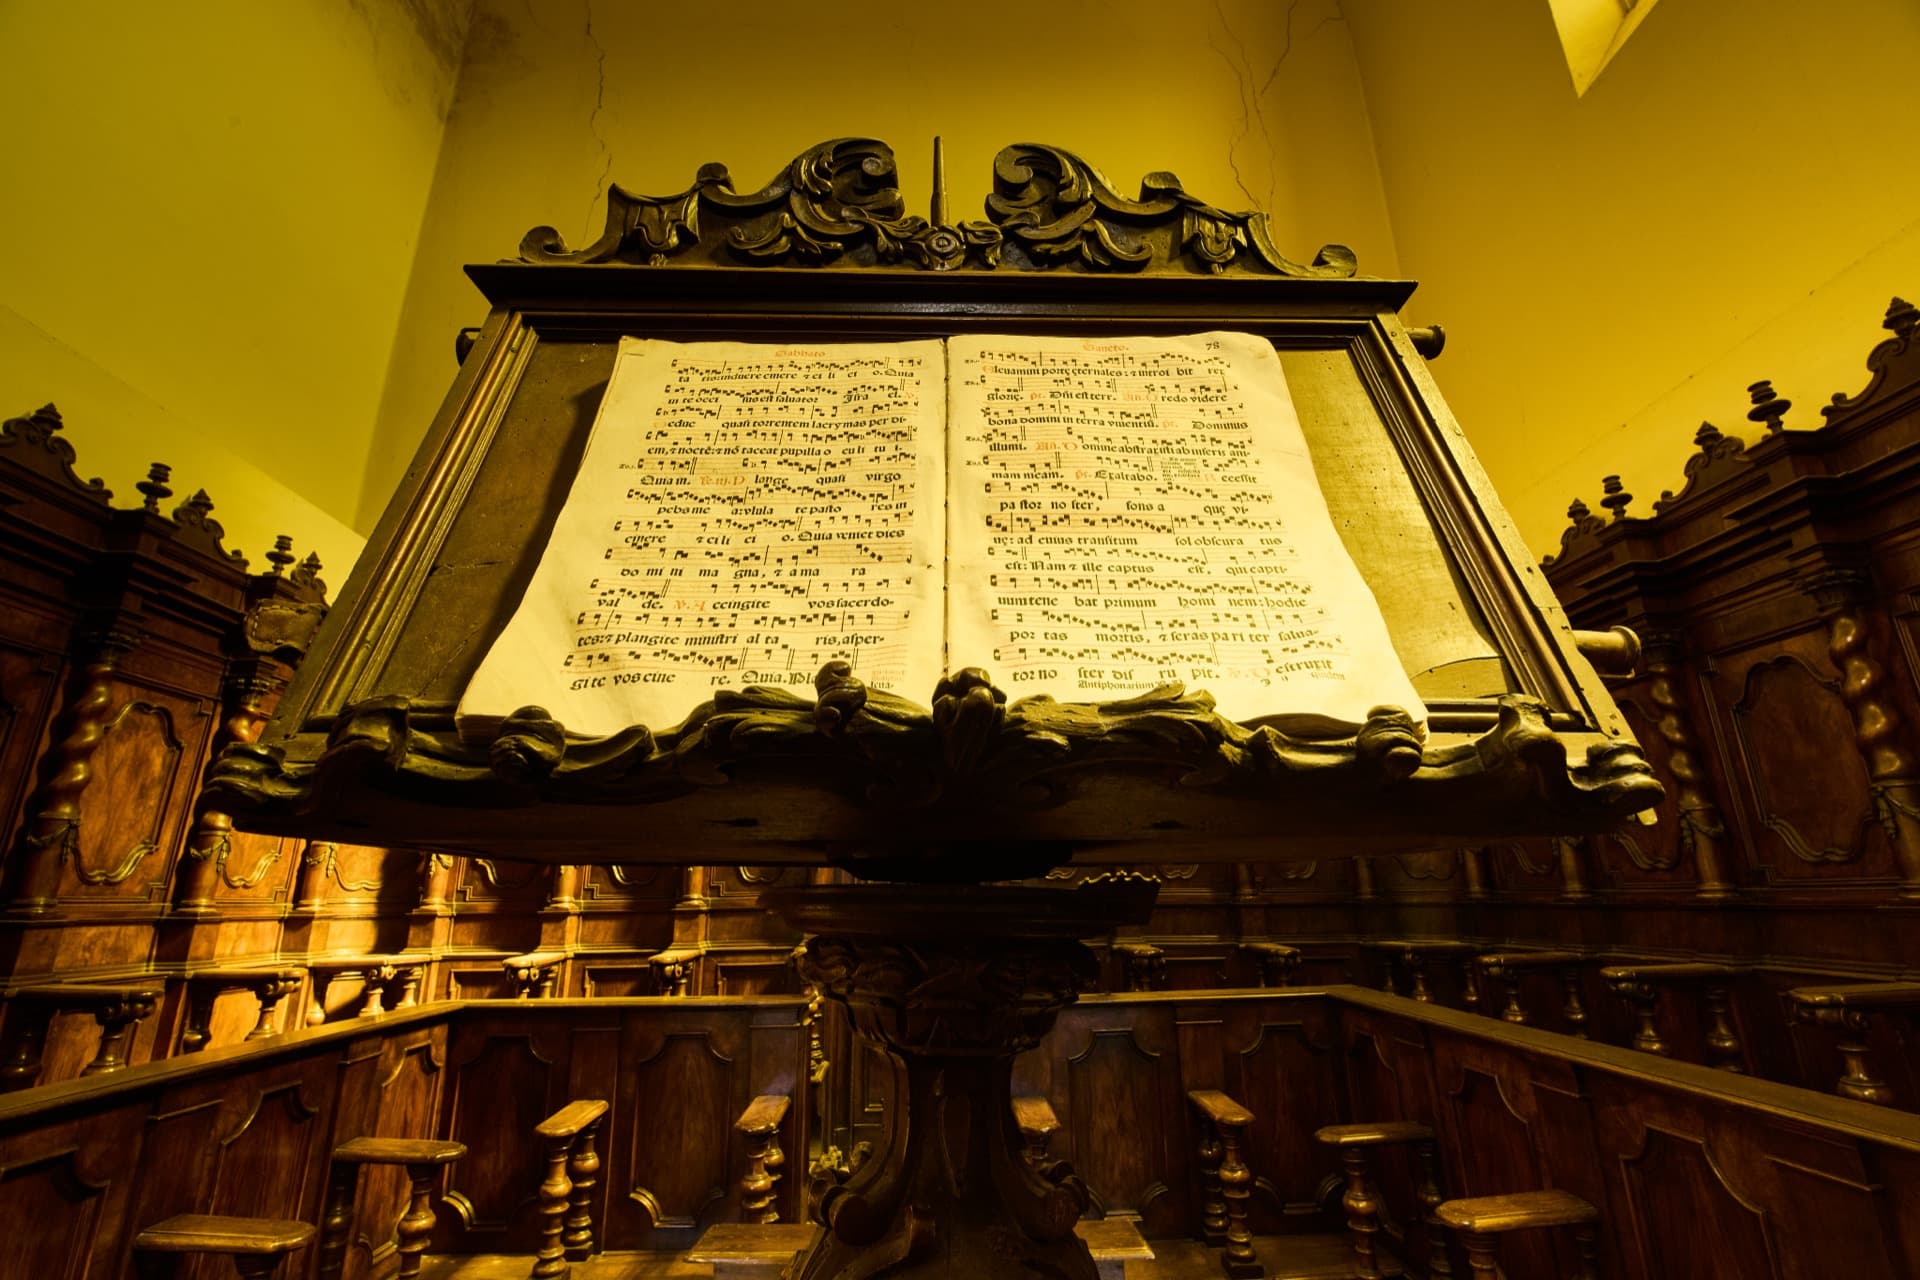 Sabbato
ta ris: induere cinere & ci li ci o. Quia
in te occi suo est saluator Isra el. V.
educ quasi torrentem lacrymas per di-
em, & noctē: & nō taceat pupilla o cu li tu i.
Quia in. Re. iij. P lange quasi virgo
plebs me a: vlula te pasto res in
cinere & ci li ci o. Quia veniet dies
do mi ni ma gna, & a ma ra
val de. V. A ccingite vos sacerdo-
tes: & plangite ministri al ta ris, asper-
gi te vos cine re. Quia. Pla
Sancto. 78
Eleuamini portę ęternales: & introi bit rex
glorię. ps. Dñi est terr. Añ. C redo videre
bona domini in terra viuentiū. ps. Dominus
illumi. Añ. D omine abstraxisti ab inferis ani-
mam meam. ps. Exaltabo. R ecessit
pa stor no ster, fons a quę vi-
uę: ad cuius transitum sol obscura tus
est: Nam & ille captus est, qui capti-
uum tene bat primum homi nem: hodie
por tas mortis, & seras pa ri ter salua-
tor no ster dis ru pit. V. D estruxit
quidem
Antiphonarium